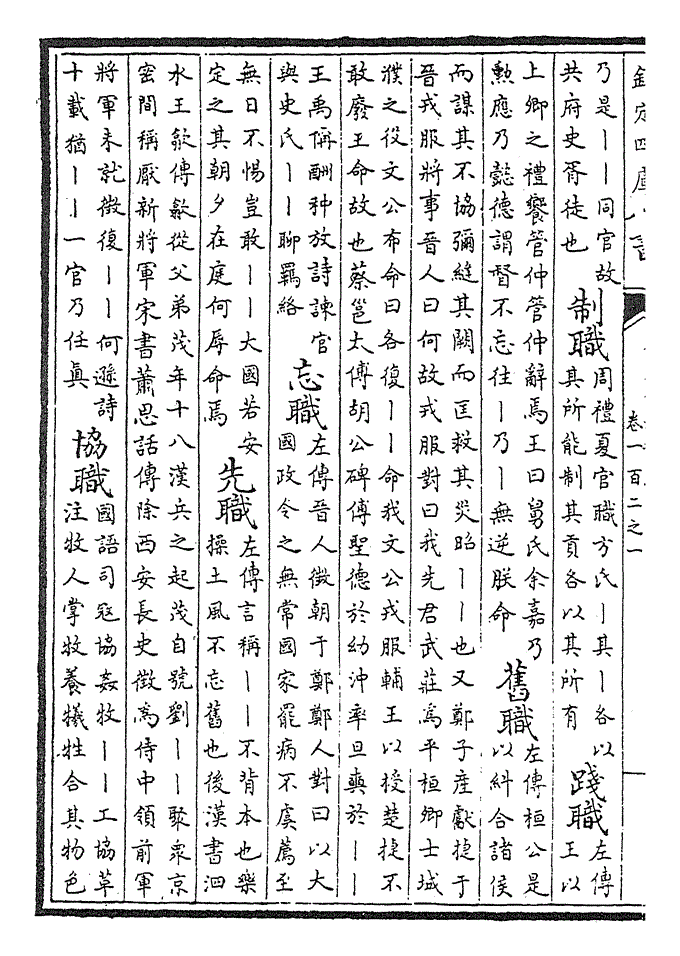 欽定四庫全書
卷一百二之一
乃是丨丨同官故
共府史胥徒也
制職
周禮夏官職方氏丨其丨各以
其所能制其貢各以其所有
踐職
左傳
王以
上卿之禮饗管仲管仲辭焉王曰舅氏余嘉乃
勲應乃懿德謂督不忘往丨乃丨無逆朕命
舊職
左傳桓公是
以糾合諸侯
而謀其不協彌縫其闕而匡救其災昭丨丨也又鄭子産獻捷于
晉戎服將事晉人曰何故戎服對曰我先君武莊為平桓卿士城
濮之役文公布命曰各復丨丨命我文公戎服輔王以授楚捷不
敢廢王命故也蔡邕太傅胡公碑傅聖德於幼沖率旦奭於丨丨
王禹偁酬种放詩諫官
與史氏丨丨聊羈絡
忘職
左傳晉人徵朝于鄭鄭人對曰以大
國政令之無常國家罷病不虞薦至
無日不惕豈敢丨丨大國若安
定之其朝夕在庭何辱命焉
先職
左傳言稱丨丨不背本也樂
操土風不忘舊也後漢書泗
水王歙傳歙從父弟茂年十八漢兵之起茂自號劉丨丨聚衆京
密間稱厭新將軍宋書蕭思話傳除西安長史徵為侍中領前軍
將軍未就徵復丨丨何遜詩
十載猶丨丨一官乃任眞
協職
國語司寇協姦牧丨丨工協草
注牧人掌牧養犧牲合其物色